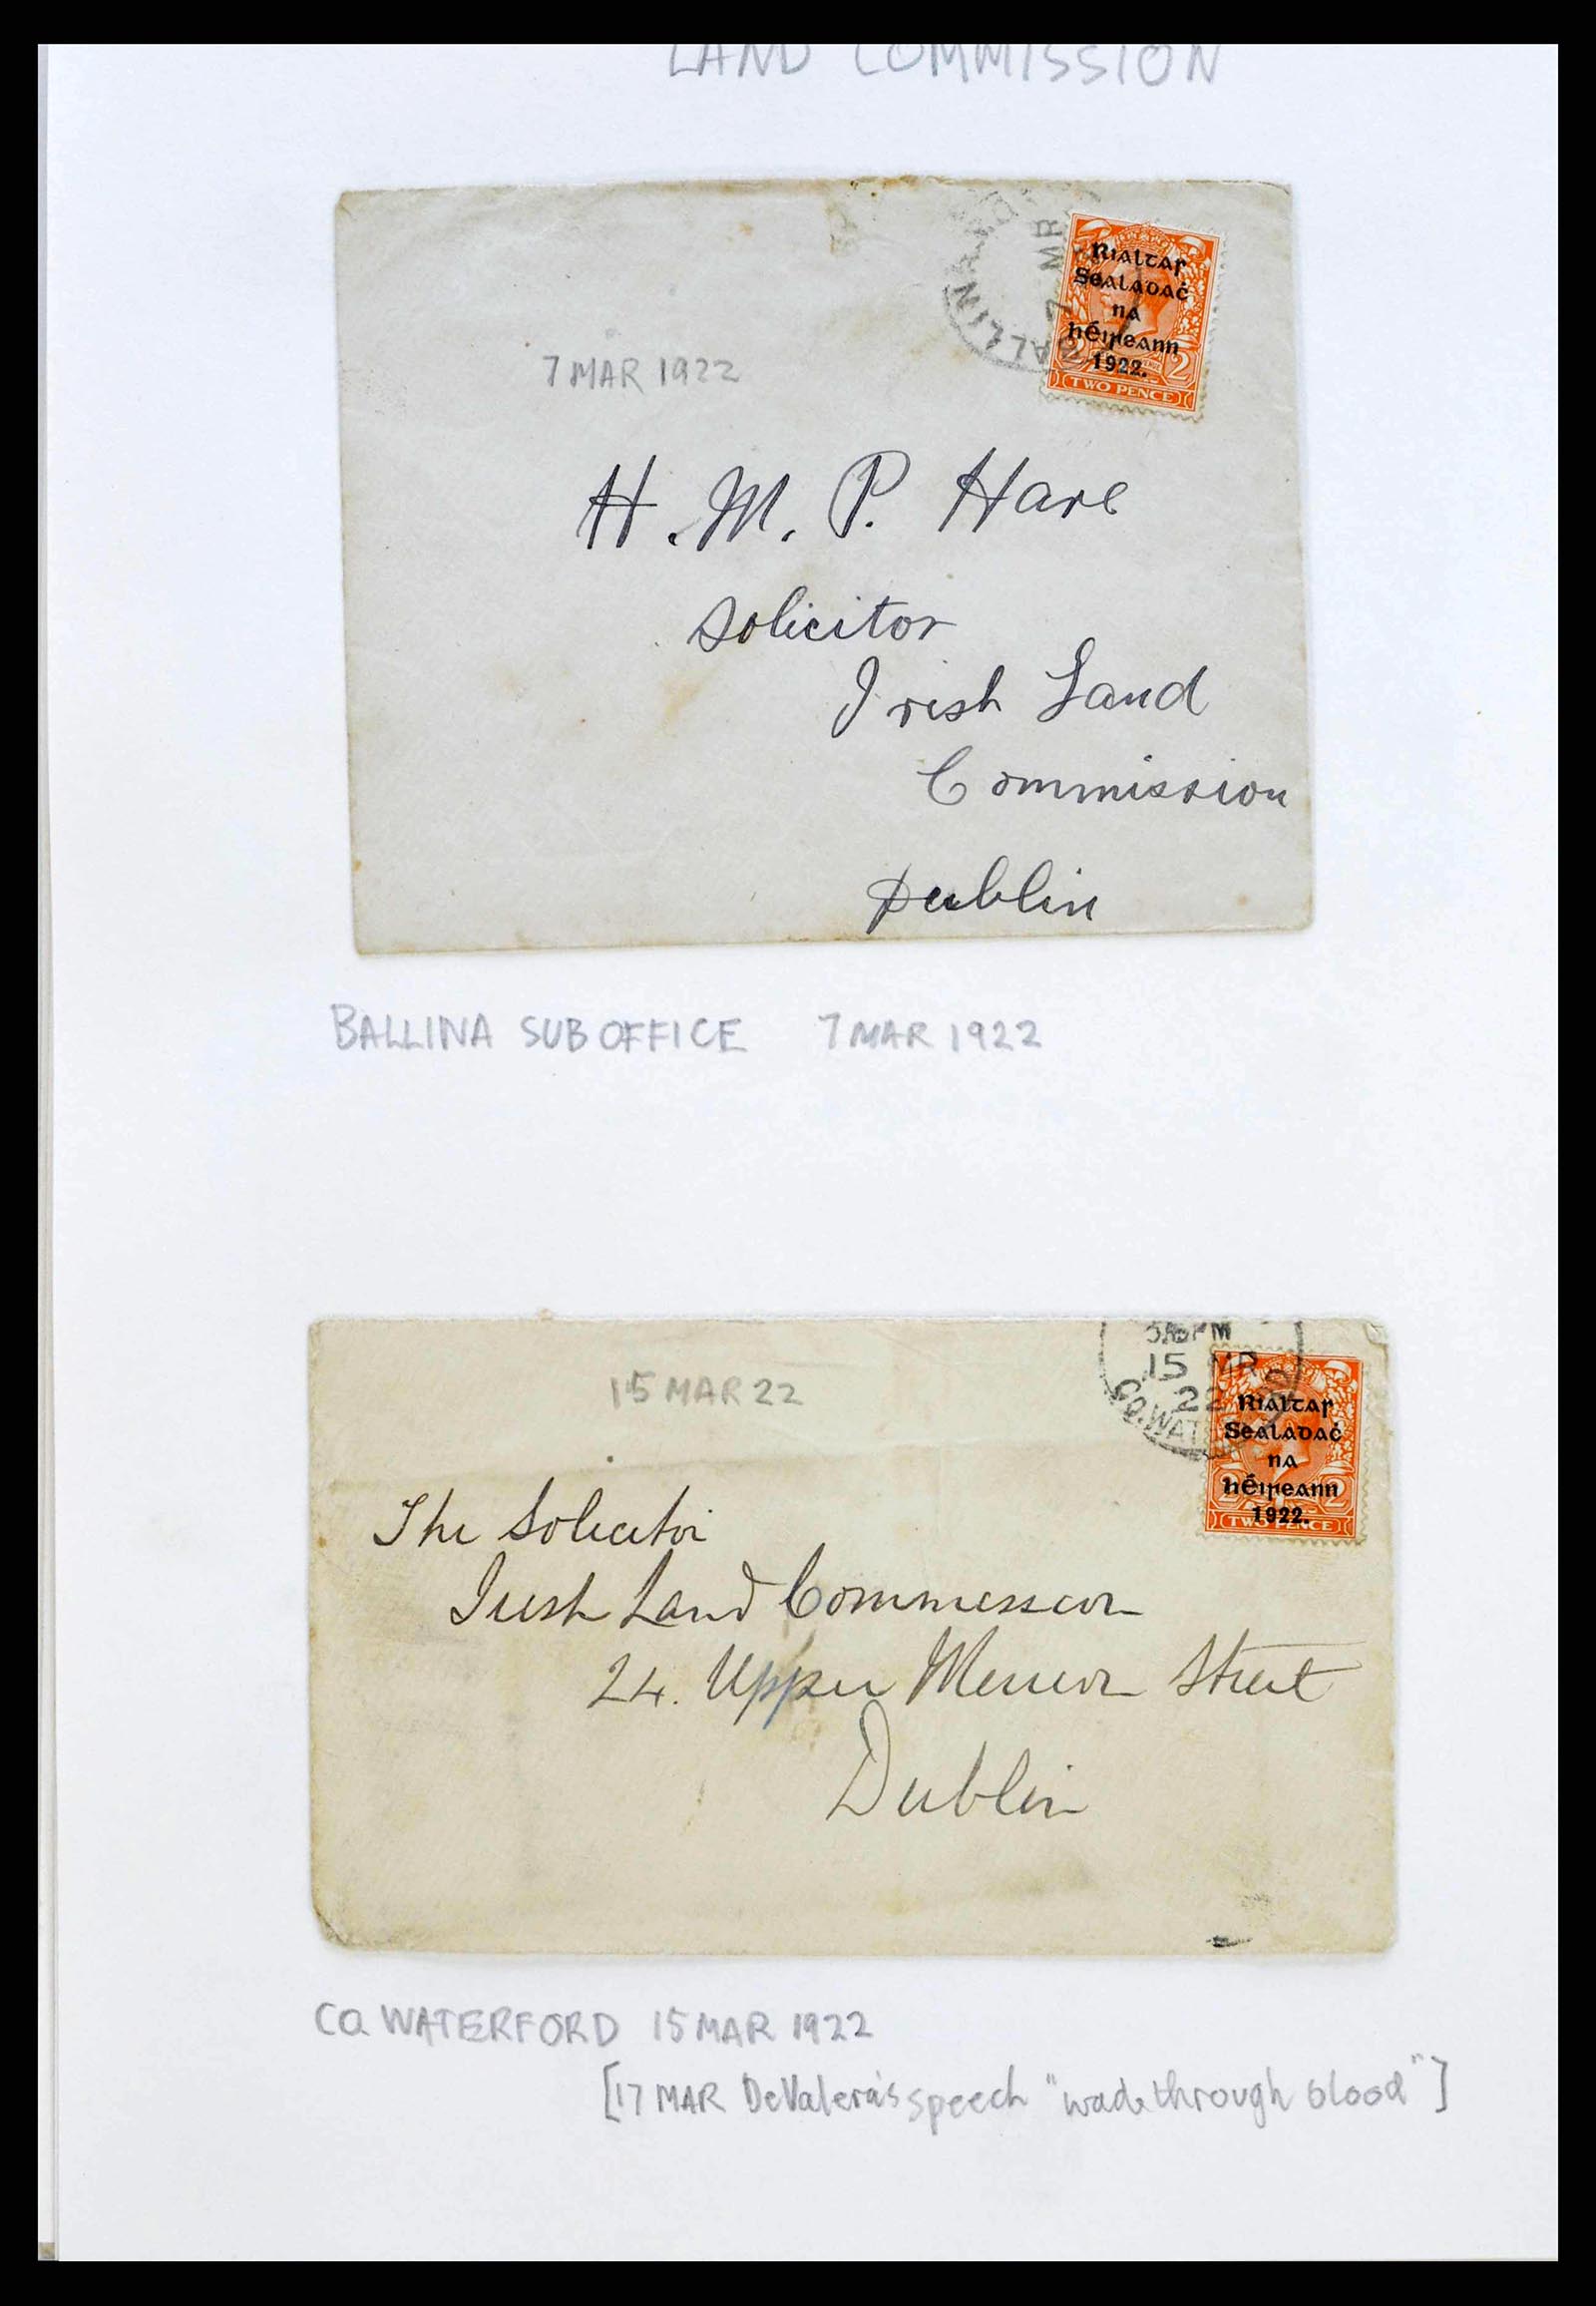 LAND COMMISSION
BALLINA
7 MR
Rialtaꞅ
Sealadaċ
na
hÉiꞃeann
1922.
2
TWO PENCE
7 MAR 1922
H. M. P. Hare
Solicitor
Irish Land
Commission
Dublin
BALLINA SUB OFFICE 7 MAR 1922
PM
15 MR
22
CO. WAT
Rialtaꞅ
Sealadaċ
na
hÉiꞃeann
1922.
2 2
TWO PENCE
15 MAR 22
The Solicitor
Irish Land Commission
24. Upper Merrion Street
Dublin
CO. WATERFORD 15 MAR 1922
[17 MAR DeValera's speech "wade through blood"]